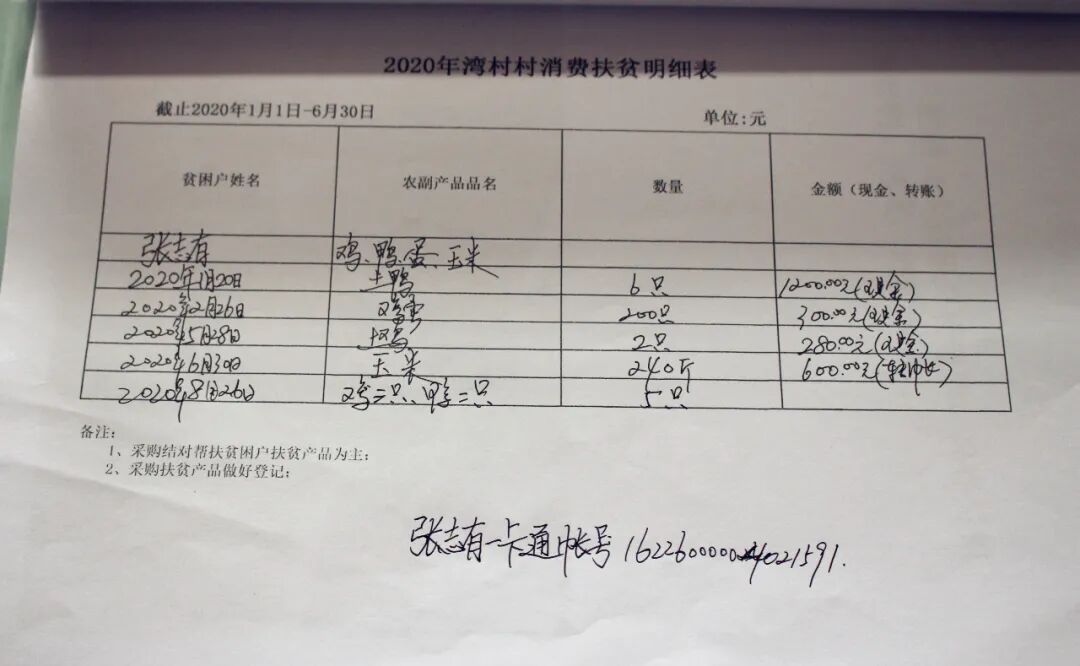 2020年湾村村消费扶贫明细表
截止2020年1月1日-6月30日 单位:元
贫困户姓名 农副产品品名 数量 金额（现金、转账）
张志有 鸡、鸭、蛋、玉米
2020年1月20日 土鸭 6只 1200.00元(现金)
2020年2月26日 鸡蛋 200只 300.00元(现金)
2020年5月28日 土鸡 2只 280.00元(现金)
2020年6月30日 玉米 240斤 600.00元(转帐)
2020年8月26日 鸡三只、鸭二只 5只
备注:
1、采购结对帮扶贫困户扶贫产品为主;
2、采购扶贫产品做好登记;
张志有一卡通帐号